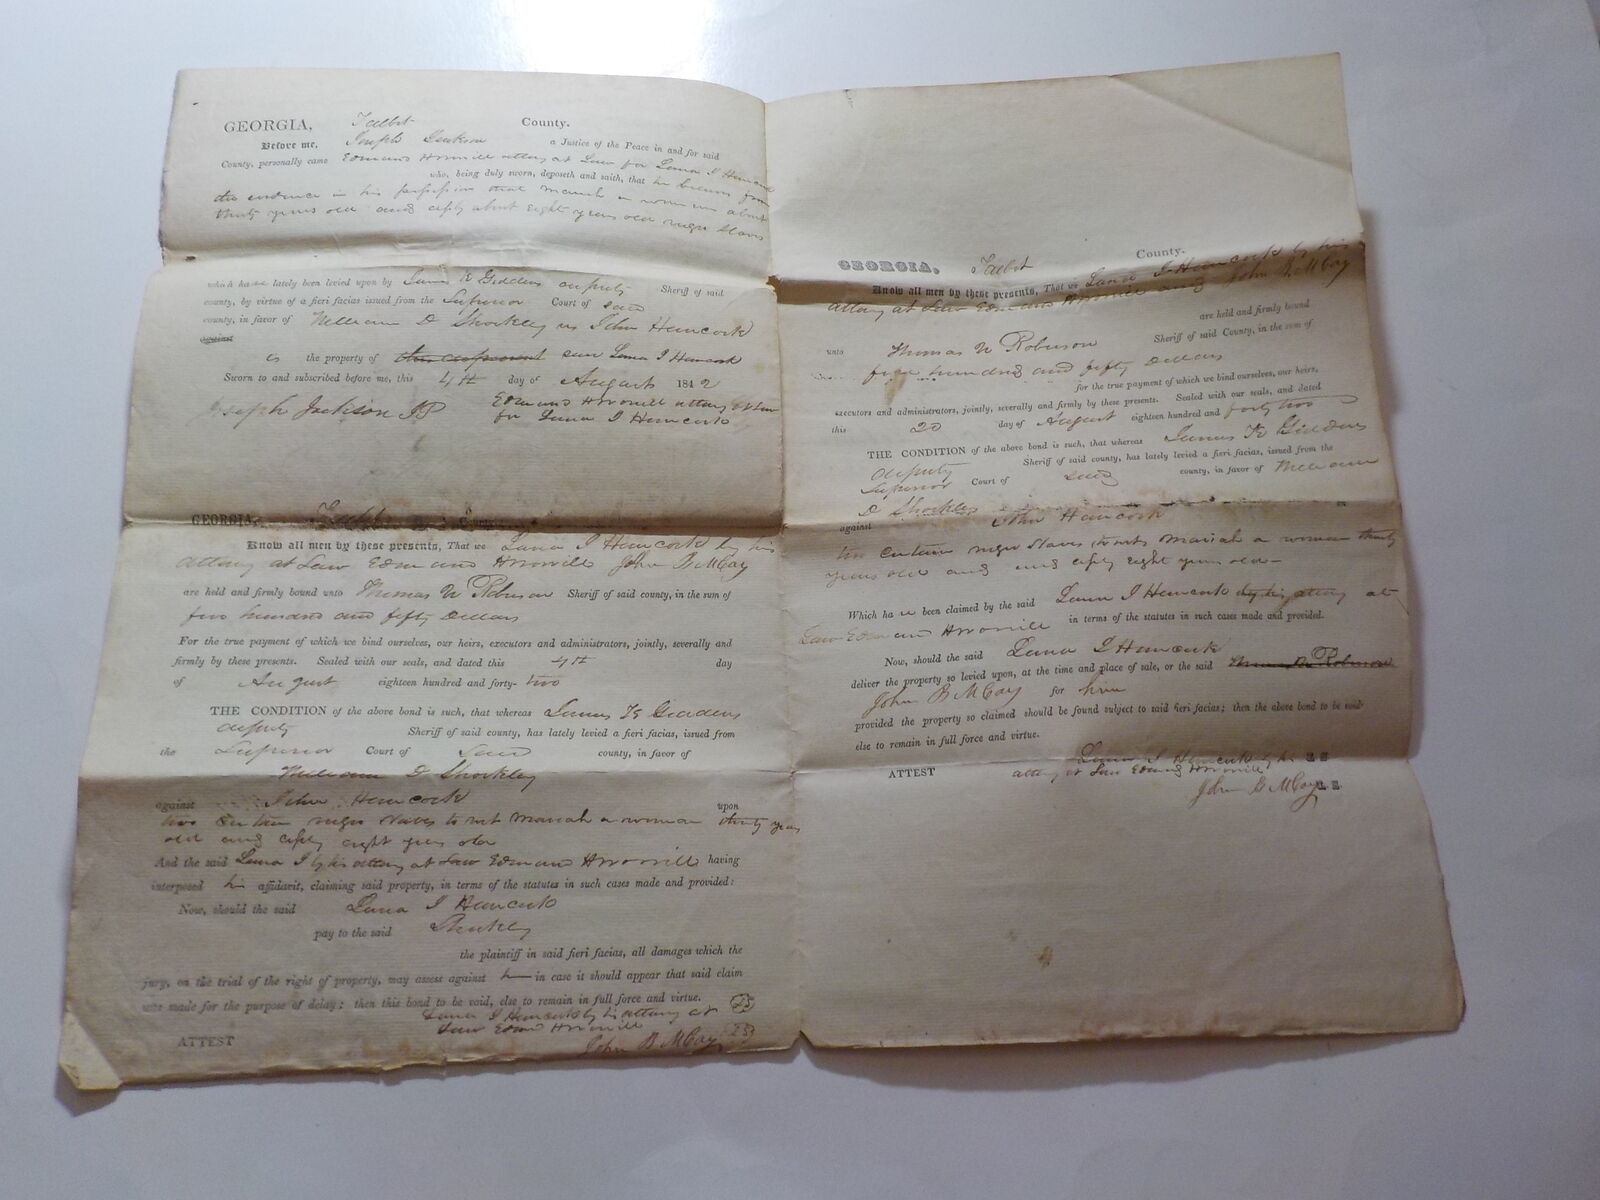 GEORGIA, Talbot County.
Before me, Joseph Jackson a Justice of the Peace in and for said
County, personally came Edmund H Worrill attorny at Law for I Hancock
who, being duly sworn, deposeth and saith, that he from
the evidence in his possession that Mariah a woman about
thirty years old and about Eight years old negro slaves
which have lately been levied upon by James K Giddens deputy Sheriff of said
county, by virtue of a fieri facias issued from the Superior Court of said
county, in favor of William D Shockley vs John Hancock
against
is the property of said I Hancock
Sworn to and subscribed before me, this 4th day of August 1842
Joseph Jackson JP Edmund H Worrill attorny at Law
for I Hancock
GEORGIA, Talbot County
Know all men by these presents, That we I Hancock by his
attorny at Law Edmund H Worrill John B McCay
are held and firmly bound unto Thomas N Robinson Sheriff of said county, in the sum of
two hundred and fifty Dollars
For the true payment of which we bind ourselves, our heirs, executors and administrators, jointly, severally and
firmly by these presents. Sealed with our seals, and dated this 4th day
of August eighteen hundred and forty-two
THE CONDITION of the above bond is such, that whereas James K Giddens
deputy Sheriff of said county, has lately levied a fieri facias, issued from
the Superior Court of said county, in favor of
William D Shockley
against John Hancock upon
two certain negro slaves to wit Mariah a woman thirty years
old and eight years old
And the said I by his attorny at Law Edmund H Worrill having
interposed his affidavit, claiming said property, in terms of the statutes in such cases made and provided:
Now, should the said I Hancock
pay to the said Shockley
the plaintiff in said fieri facias, all damages which the
jury, on the trial of the right of property, may assess against in case it should appear that said claim
was made for the purpose of delay; then this bond to be void, else to remain in full force and virtue.
I Hancock by his attorny at
Law Edmund H Worrill
ATTEST John B McCay
GEORGIA, Talbot County.
Know all men by these presents, That we I Hancock by his
attorny at Law Edmund H Worrill and John B McCay
are held and firmly bound
unto Thomas N Robinson Sheriff of said County, in the sum of
five hundred and fifty Dollars
for the true payment of which we bind ourselves, our heirs,
executors and administrators, jointly, severally and firmly by these presents. Sealed with our seals, and dated
this 20 day of August eighteen hundred and forty two
THE CONDITION of the above bond is such, that whereas James K Giddens
deputy Sheriff of said county, has lately levied a fieri facias, issued from the
Superior Court of said county, in favor of William
D Shockley
against John Hancock
two certain negro slaves to wit Mariah a woman thirty
years old and eight years old
Which have been claimed by the said I Hancock by his attorny at
Law Edmund H Worrill in terms of the statutes in such cases made and provided.
Now, should the said I Hancock
deliver the property so levied upon, at the time and place of sale, or the said Thomas N Robinson
John B McCay for him
provided the property so claimed should be found subject to said fieri facias; then the above bond to be void
else to remain in full force and virtue.
I Hancock by his L S
ATTEST attorny at Law Edmund H Worrill
John B McCay L S.